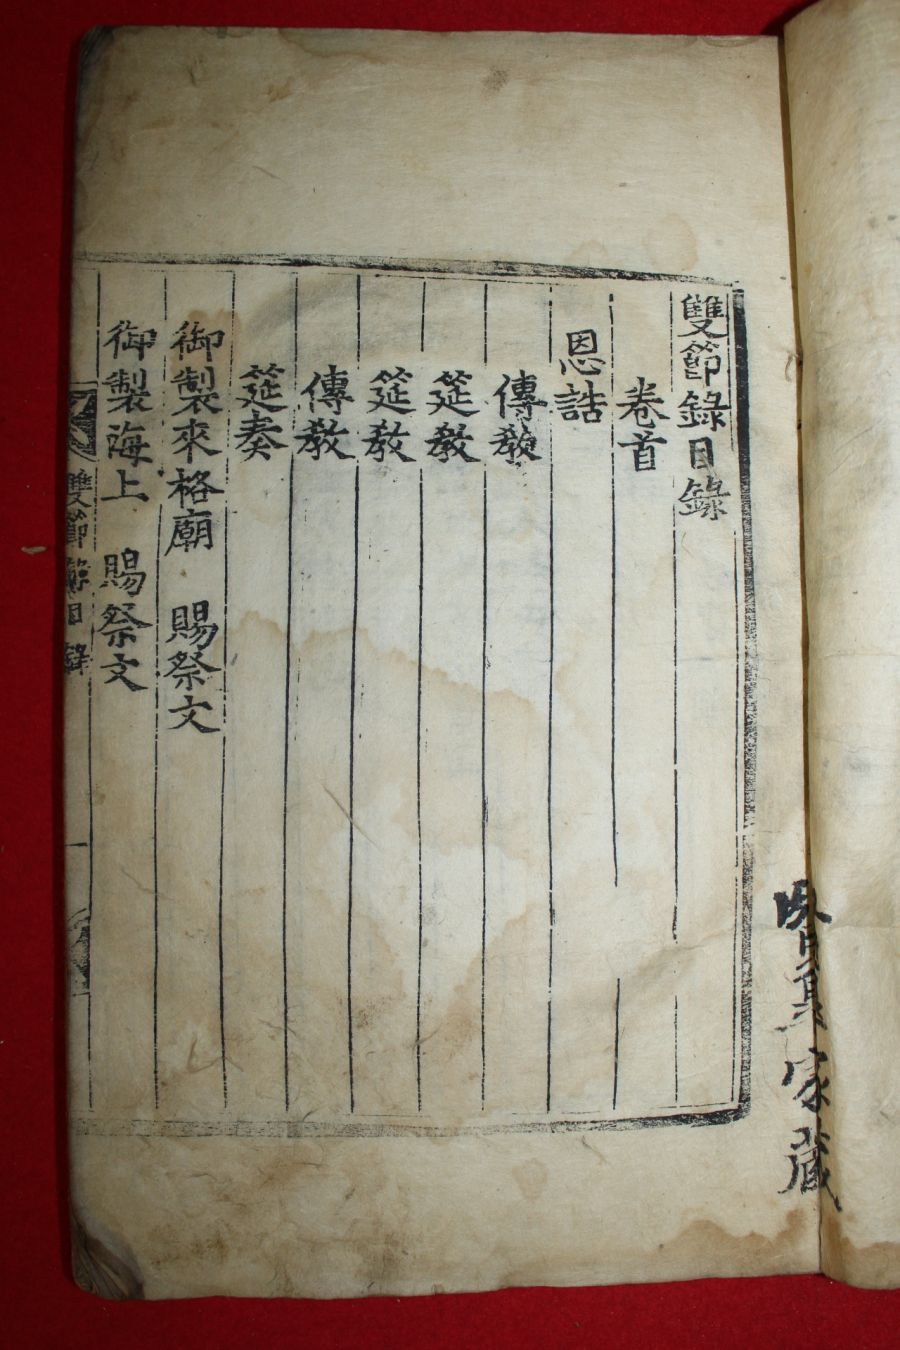 雙節錄目錄
卷首
恩誥
傳敎
筵敎
筵敎
傳敎
筵奏
御製來格廟 賜祭文
御製海上 賜祭文
雙節錄目錄
家藏